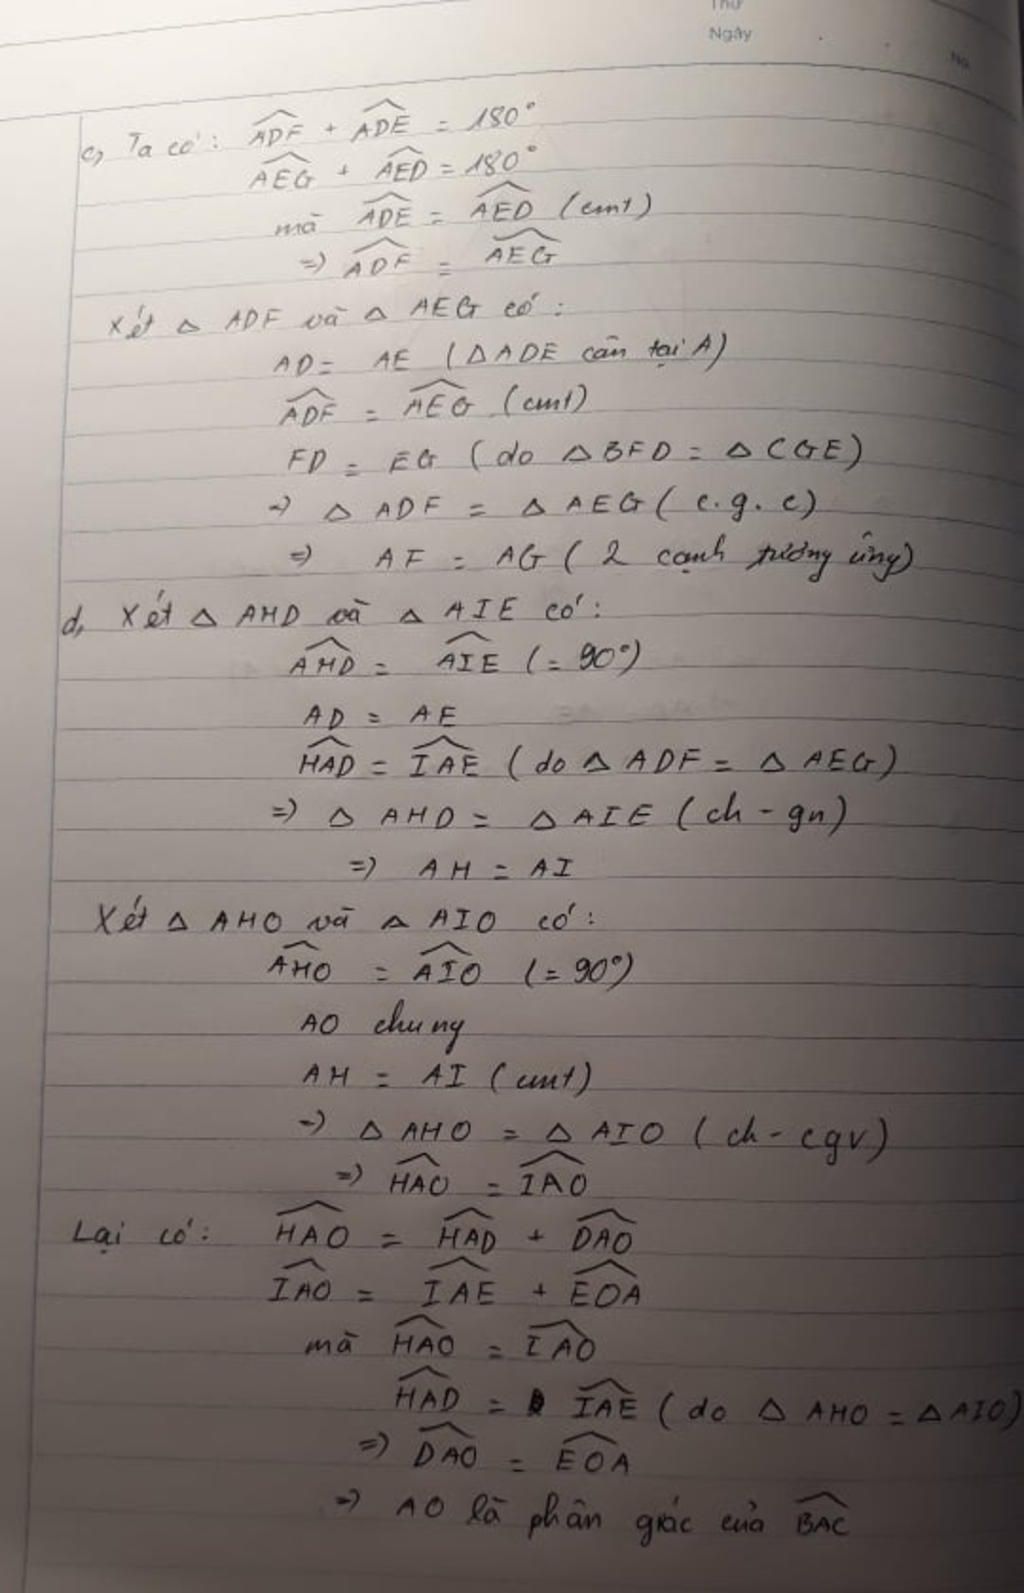 Thứ
Ngày
No.
c, Ta có: ∠ADF + ∠ADE = 180°
∠AEG + ∠AED = 180°
mà ∠ADE = ∠AED (cmt)
=> ∠ADF = ∠AEG
Xét △ ADF và △ AEG có:
AD = AE (△ADE cân tại A)
∠ADF = ∠AEG (cmt)
FD = EG (do △ BFD = △ CGE)
=> △ ADF = △ AEG (c.g.c)
=> AF = AG (2 cạnh tương ứng)
d, Xét △ AHD và △ AIE có:
∠AHD = ∠AIE (= 90°)
AD = AE
∠HAD = ∠IAE (do △ ADF = △ AEG)
=> △ AHD = △ AIE (ch - gn)
=> AH = AI
Xét △ AHO và △ AIO có:
∠AHO = ∠AIO (= 90°)
AO chung
AH = AI (cmt)
=> △ AHO = △ AIO (ch - cgv)
=> ∠HAO = ∠IAO
Lại có: ∠HAO = ∠HAD + ∠DAO
∠IAO = ∠IAE + ∠EOA
mà ∠HAO = ∠IAO
∠HAD = ∠IAE (do △ AHO = △ AIO)
=> ∠DAO = ∠EOA
=> AO là phân giác của ∠BAC